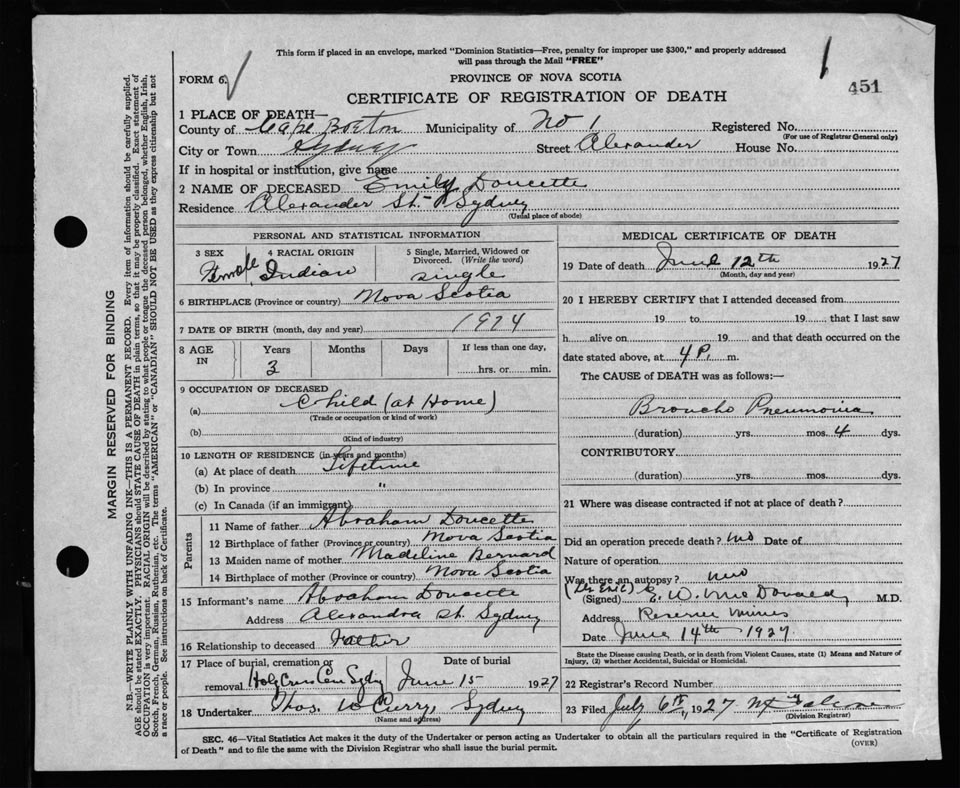 This form if placed in an envelope, marked "Dominion Statistics—Free, penalty for improper use $300," and properly addressed
will pass through the Mail "FREE"
FORM 6.
PROVINCE OF NOVA SCOTIA
451
CERTIFICATE OF REGISTRATION OF DEATH
1 PLACE OF DEATH—
County of Cape Breton Municipality of No 1 Registered No.
(For use of Registrar General only)
City or Town Sydney Street Alexander House No.
If in hospital or institution, give name
2 NAME OF DECEASED Emily Doucette
Residence Alexander St. Sydney
(Usual place of abode)
MARGIN RESERVED FOR BINDING
N.B.—WRITE PLAINLY, WITH UNFADING INK—THIS IS A PERMANENT RECORD. Every item of information should be carefully supplied.
AGE should be stated EXACTLY. PHYSICIANS should STATE CAUSE OF DEATH in plain terms, so that it may be properly classified. Exact statement of
OCCUPATION is very important. RACIAL ORIGIN will be described by stating to what people or tongue the deceased person belonged, whether English, Irish,
Scotch, French, German, Russian, Ruthenian, etc. The terms "AMERICAN" or "CANADIAN" SHOULD NOT BE USED as they express citizenship but not
a race or people. See instructions on back of Certificate.
PERSONAL AND STATISTICAL INFORMATION
3 SEX
Female
4 RACIAL ORIGIN
Indian
5 Single, Married, Widowed or
Divorced. (Write the word)
single
6 BIRTHPLACE (Province or country) Nova Scotia
7 DATE OF BIRTH (month, day and year) 1924
8 AGE IN
Years
3
Months
Days
If less than one day,
hrs. or min.
9 OCCUPATION OF DECEASED
(a) Child (at Home)
(Trade or occupation or kind of work)
(b)
(Kind of industry)
10 LENGTH OF RESIDENCE (in years and months)
(a) At place of death Lifetime
(b) In province "
(c) In Canada (if an immigrant)
Parents
11 Name of father Abraham Doucette
12 Birthplace of father (Province or country) Nova Scotia
13 Maiden name of mother Madeline Bernard
14 Birthplace of mother (Province or country) Nova Scotia
15 Informant's name Abraham Doucette
Address Alexandra St. Sydney
16 Relationship to deceased Father
17 Place of burial, cremation or Date of burial
removal Holy Cross Cem Sydy June 15 1927
18 Undertaker Thos. W Curry, Sydney
(Name and address)
MEDICAL CERTIFICATE OF DEATH
19 Date of death June 12th 1927
(Month, day and year)
20 I HEREBY CERTIFY that I attended deceased from
19 to 19 , that I last saw
h alive on 19 and that death occurred on the
date stated above, at 4 P. m.
The CAUSE OF DEATH was as follows:—
Broncho Pneumonia
(duration) yrs. mos. 4 dys.
CONTRIBUTORY
(duration) yrs. mos. dys.
21 Where was disease contracted if not at place of death?
Did an operation precede death? no Date of
Nature of operation
Was there an autopsy? no
(Signed) E. W. McDonald M.D.
Address Reserve Mines
Date June 14th 1927
State the Disease causing Death, or in death from Violent Causes, state (1) Means and Nature of
Injury, (2) whether Accidental, Suicidal or Homicidal.
22 Registrar's Record Number
23 Filed July 6th, 1927
(Division Registrar)
SEC. 46—Vital Statistics Act makes it the duty of the Undertaker or person acting as Undertaker to obtain all the particulars required in the "Certificate of Registration
of Death" and to file the same with the Division Registrar who shall issue the burial permit.
(OVER)